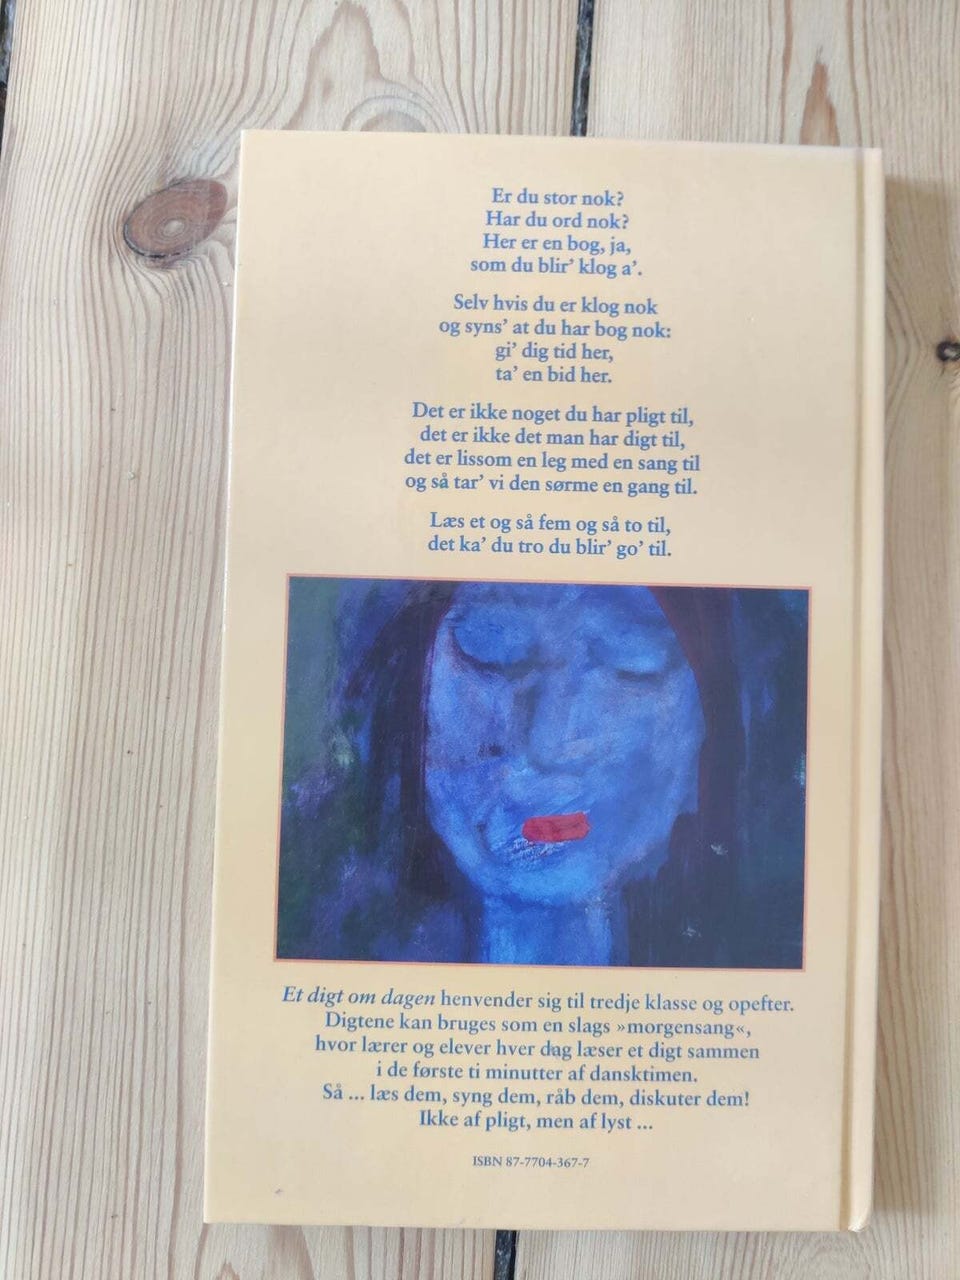 Er du stor nok?
Har du ord nok?
Her er en bog, ja,
som du blir’ klog a’.
Selv hvis du er klog nok
og syns’ at du har bog nok:
gi’ dig tid her,
ta’ en bid her.
Det er ikke noget du har pligt til,
det er ikke det man har digt til,
det er lissom en leg med en sang til
og så tar’ vi den sørme en gang til.
Læs et og så fem og så to til,
det ka’ du tro du blir’ go’ til.
Et digt om dagen henvender sig til tredje klasse og opefter.
Digtene kan bruges som en slags »morgensang«,
hvor lærer og elever hver dag læser et digt sammen
i de første ti minutter af dansktimen.
Så ... læs dem, syng dem, råb dem, diskuter dem!
Ikke af pligt, men af lyst ...
ISBN 87-7704-367-7